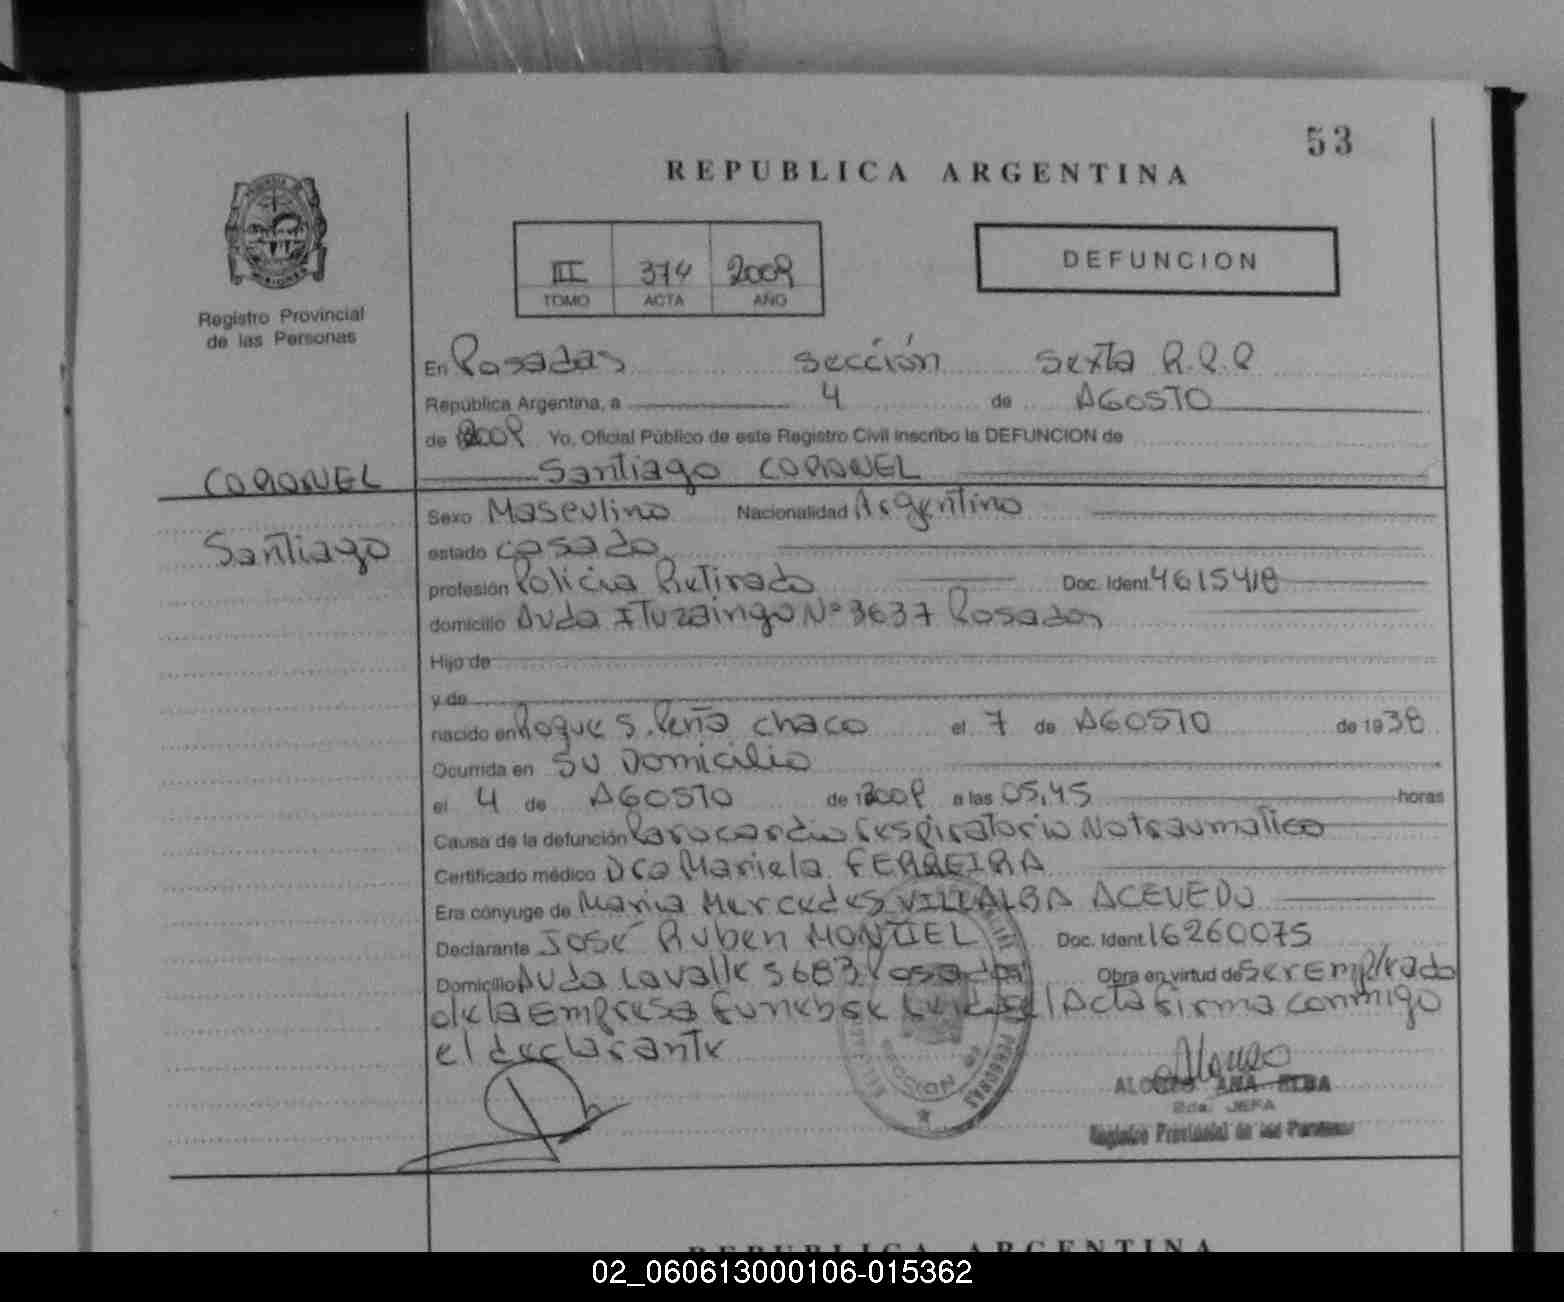 53
REPUBLICA ARGENTINA
III 374 2009
TOMO ACTA AÑO
DEFUNCION
Registro Provincial
de las Personas
En Posadas sección sexta R.P.P
República Argentina, a 4 de AGOSTO
de 2009 Yo, Oficial Público de este Registro Civil inscribo la DEFUNCION de
CORONEL
Santiago CORONEL
Santiago
Sexo Masculino Nacionalidad Argentino
estado casado
profesión Policia Retirado Doc. Ident. 4615418
domicilio Avda Ituzaingo Nº 3637 Posadas
Hijo de
y de
nacido en Roque S. Peña Chaco el 7 de AGOSTO de 1938
Ocurrida en SU Domicilio
el 4 de AGOSTO de 2009 a las 05,45 horas
Causa de la defunción Parocardio respiratorio No traumatico
Certificado médico Dra Mariela FERREIRA
Era cónyuge de Maria Mercedes VILLALBA ACEVEDO
Declarante José Ruben MONTIEL Doc. Ident. 16260075
Domicilio Avda Lavalle 5683 Posadas Obra en virtud de ser Empleado
de la Empresa funebre Leida el Acta firma conmigo
el declarante
Alonso
ALONZO ANA ELBA
Bda. JEFA
Registro Provincial de las Personas
REPUBLICA ARGENTINA
02_060613000106-015362